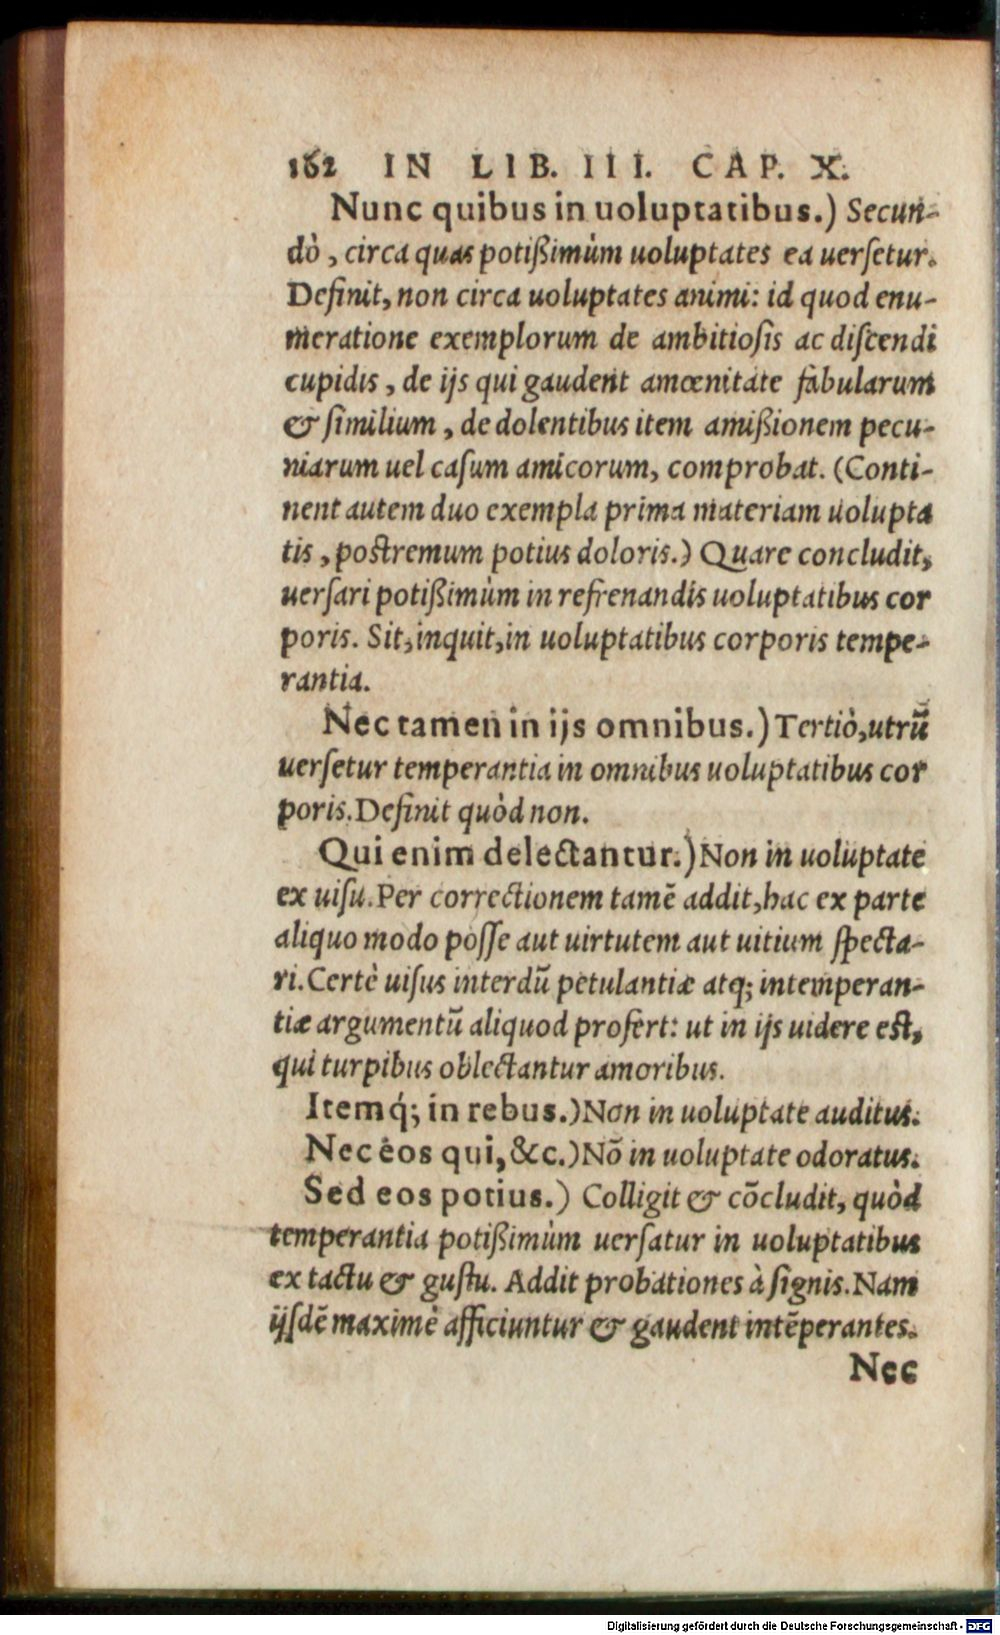 162 IN LIB. III. CAP. X.
Nunc quibus in uoluptatibus.) Secun-
dò, circa quas potißimùm uoluptates ea uersetur.
Definit, non circa uoluptates animi: id quod enu-
meratione exemplorum de ambitiosis ac discendi
cupidis, de ijs qui gaudent amœnitate fabularum
& similium, de dolentibus item amißionem pecu-
niarum uel casum amicorum, comprobat. (Conti-
nent autem duo exempla prima materiam uolupta
tis, postremum potius doloris.) Quare concludit,
uersari potißimùm in refrenandis uoluptatibus cor
poris. Sit, inquit, in uoluptatibus corporis tempe-
rantia.
Nec tamen in ijs omnibus.) Tertiò, utrũ
uersetur temperantia in omnibus uoluptatibus cor
poris. Definit quòd non.
Qui enim delectantur.) Non in uoluptate
ex uisu. Per correctionem tamẽ addit, hac ex parte
aliquo modo posse aut uirtutem aut uitium specta-
ri. Certè uisus interdũ petulantiæ atq; intemperan-
tiæ argumentũ aliquod profert: ut in ijs uidere est,
qui turpibus oblectantur amoribus.
Itemq́; in rebus.) Non in uoluptate auditus.
Nec èos qui, &c.) Nõ in uoluptate odoratus.
Sed eos potius.) Colligit & cõcludit, quòd
temperantia potißimùm uersatur in uoluptatibus
ex tactu & gustu. Addit probationes à signis. Nam
ijsdẽ maximè afficiuntur & gaudent intẽperantes.
Nec
Digitalisierung gefördert durch die Deutsche Forschungsgemeinschaft - DFG